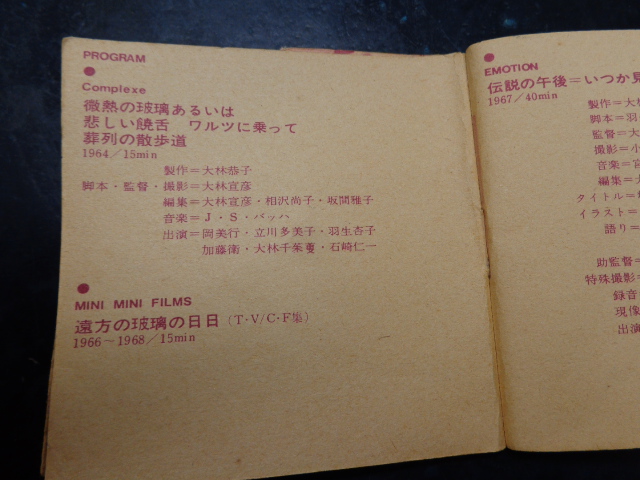 PROGRAM
Complexe
微熱の玻璃あるいは
悲しい饒舌 ワルツに乗って
葬列の散歩道
1964/15min
製作=大林恭子
脚本・監督・撮影=大林宣彦
編集=大林宣彦・相沢尚子・坂間雅子
音楽=J・S・バッハ
出演=岡美行・立川多美子・羽生杏子
加藤衛・大林千茱萸・石崎仁一
MINI MINI FILMS
遠方の玻璃の日日(T・V/C・F集)
1966〜1968/15min
EMOTION
伝説の午後=いつか見
1967/40min
製作=大林
脚本=羽
監督=大
撮影=小
音楽=宮
編集=大
タイトル=
イラスト=
語り=
助監督=
特殊撮影=
録音
現像
出演